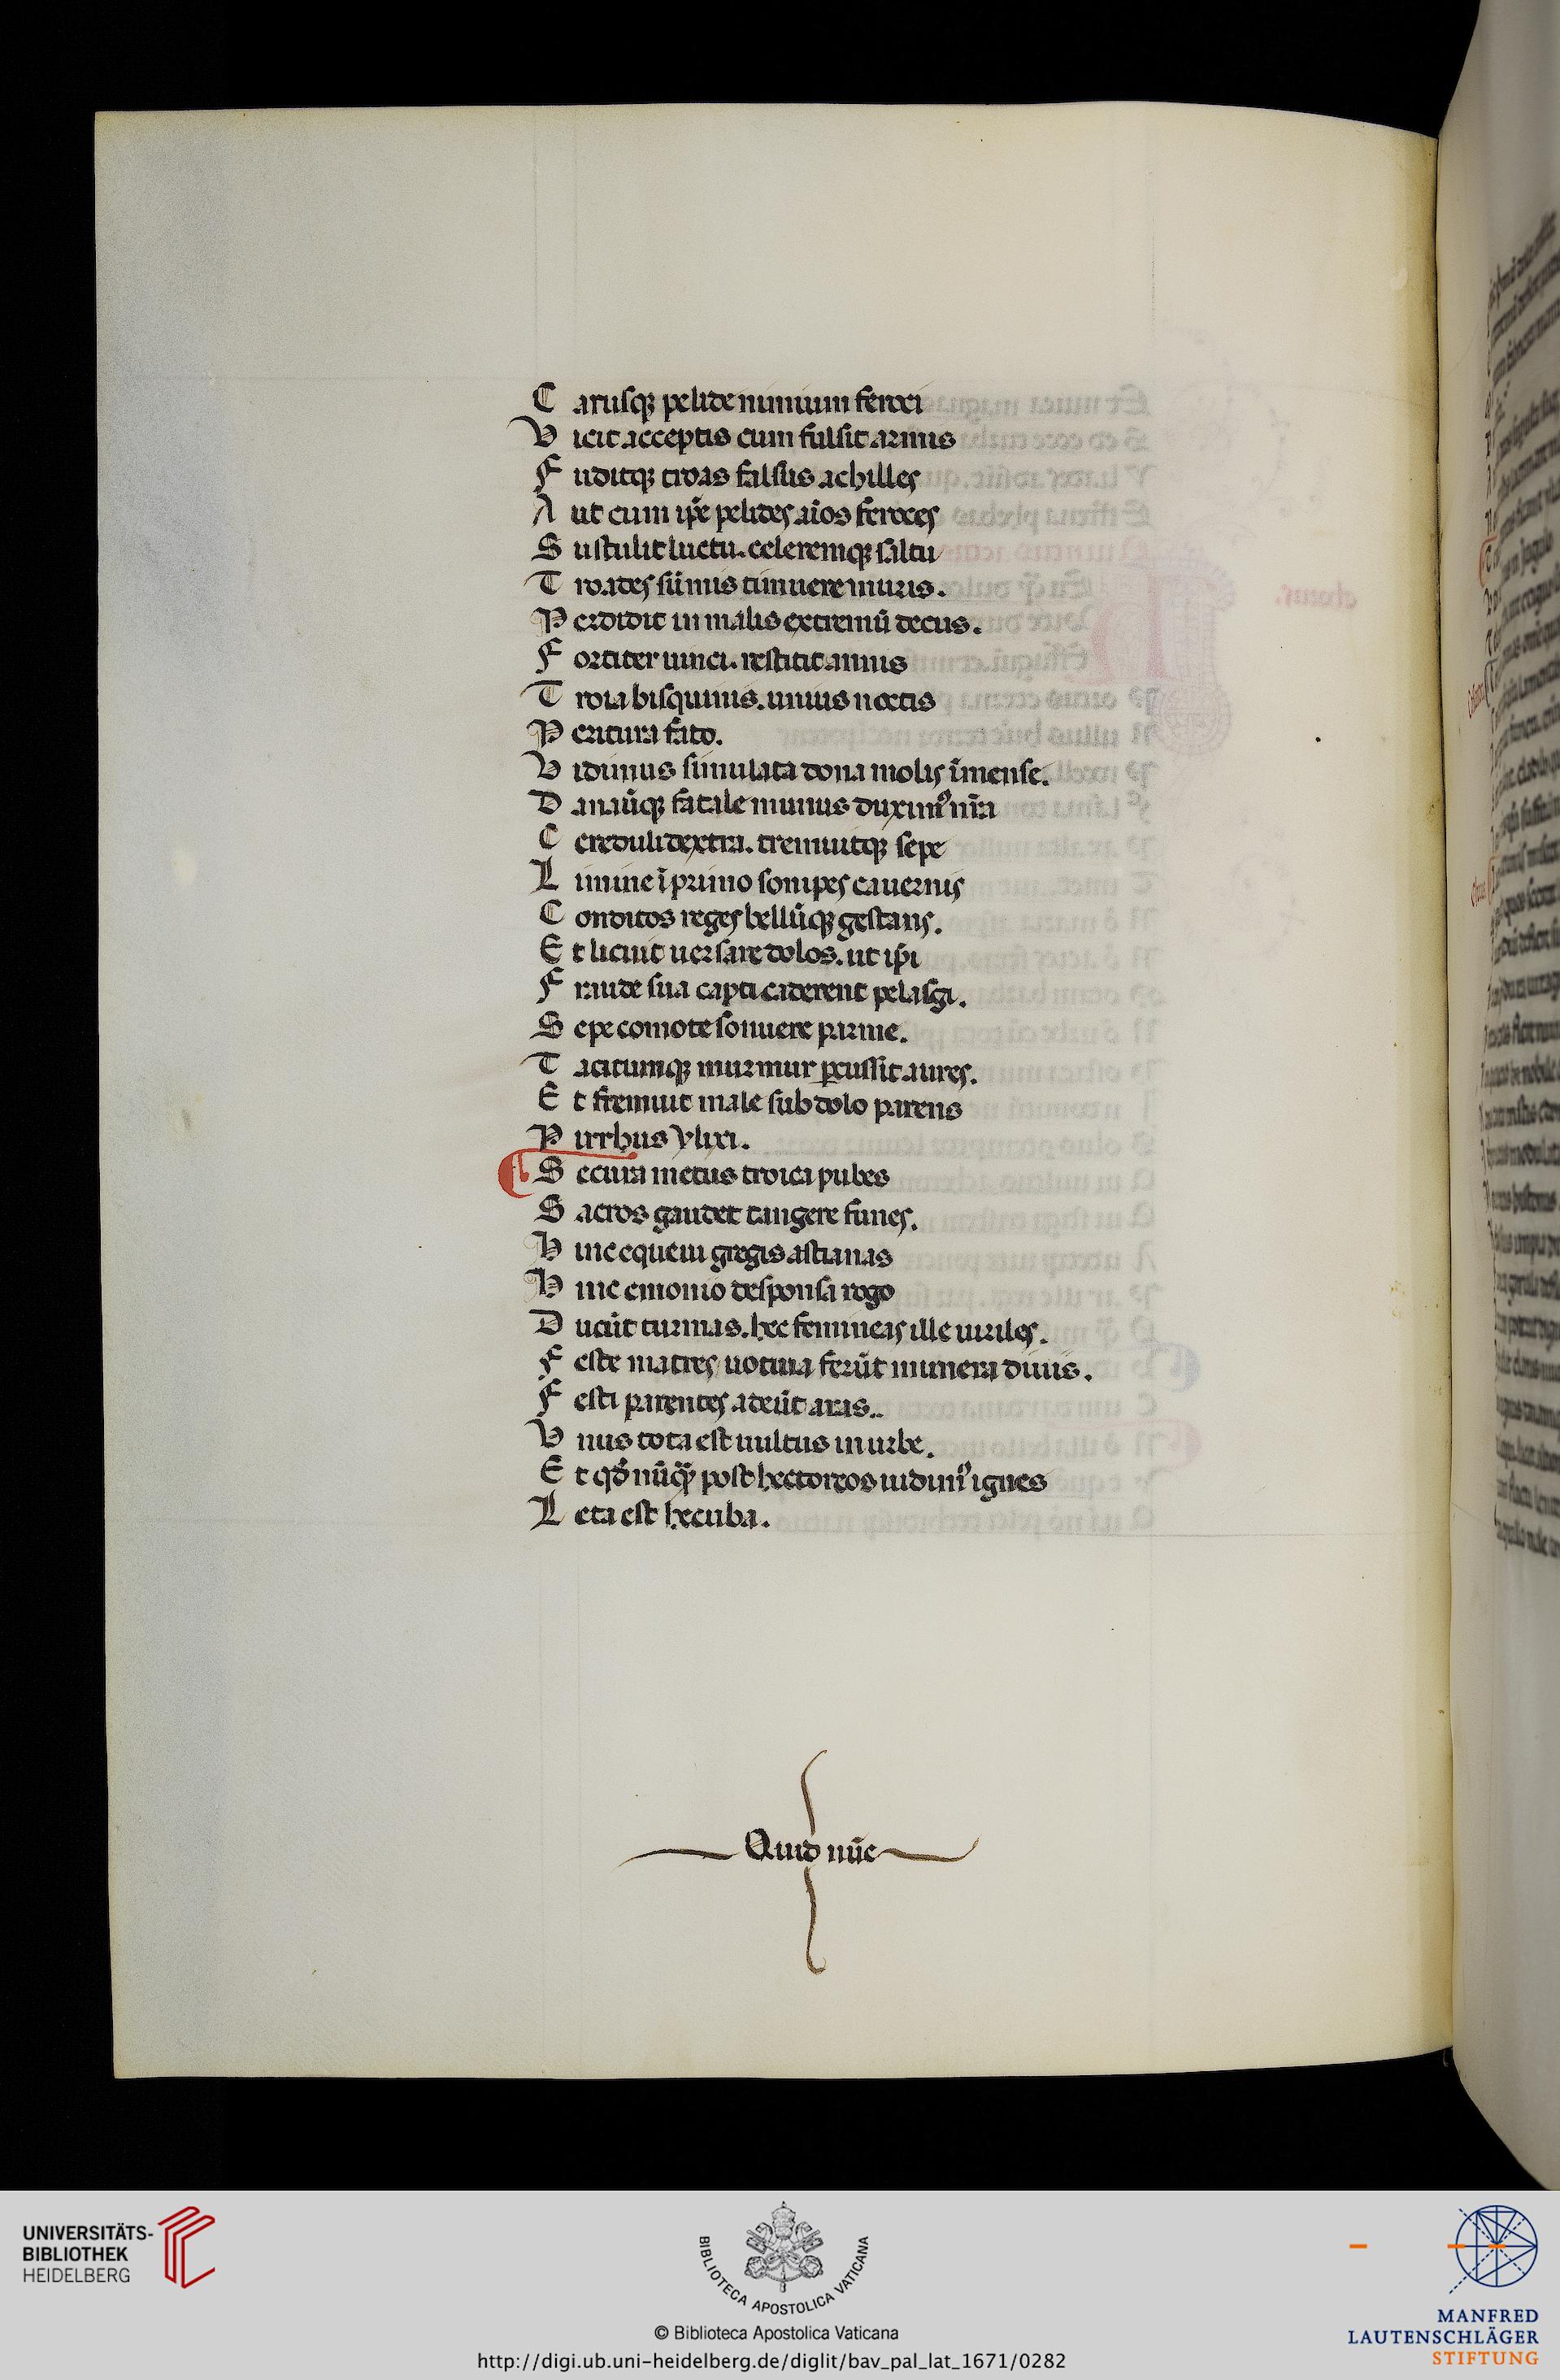 C arusq; pelide nimium feroci
V icit acceptis cum fulsit armis
F uditq; troas falsus achilles
A ut cum ip̄e pelides aīos feroces
S ustulit luctu. celeremq; saltu
T roades sūmis timuere muris.
P erdidit in malis extremū decus.
F ortiter uinci. restitit annis
T roia bisquinis. unius noctis
P eritura fato.
V idimus simulata dona molis īmense.
D anaūq; fatale munus duximꝰ nr̄a
C creduli dextra. tremuitq; sepe
L imine ī primo sonipes cauernis
C onditos reges bellūq; gestans.
E t licuit uersare dolos. ut ip̄i
F raude sua capti caderent pelasgi.
S epe comote sonuere parme.
T acitumq; murmur ꝑcussit aures.
E t fremuit male subdolo parens
P irrhus ylixi.
S ecura metus troica pubes
S acros gaudet tangere funes.
H inc equeui gregis astianas
H inc emonio desponsa rogo
D ucūt turmas. hec femineas ille uiriles.
F este matres uotiua ferūt munera diuis.
F esti parentes adeūt aras..
V nus tota est uultus in urbe.
E t qđ nūq̄ȝ post hectoreos uidimꝰ ignes
L eta est hecuba.
Quid nūc
UNIVERSITÄTS-
BIBLIOTHEK
HEIDELBERG
BIBLIOTECA APOSTOLICA VATICANA
© Biblioteca Apostolica Vaticana
http://digi.ub.uni-heidelberg.de/diglit/bav_pal_lat_1671/0282
MANFRED
LAUTENSCHLÄGER
STIFTUNG